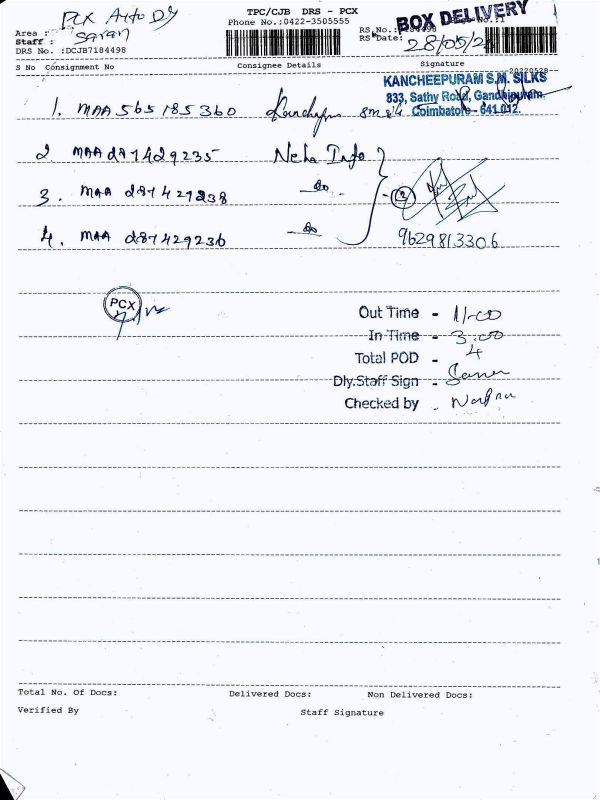 PCX Auto Dy
TPC/CJB DRS - PCX
Phone No.:0422-3505555
BOX DELIVERY
Area :
Staff : Saran
DRS No. :DCJB7184498
RS No.:
RS Date: 28/05/2
S No Consignment No Consignee Details Signature
KANCHEEPURAM S.M. SILKS
833, Sathy Road, Gandhipuram,
Coimbatore - 641 012.
1. MAA 565185360
2 MAA 287429235 Neha Info
3. MAA 287429238 do
4. MAA 287429236 do
9629813306
PCX
Out Time - 11-00
In Time - 3.00
Total POD - 4
Dly.Staff Sign - Saran
Checked by -
Total No. Of Docs: Delivered Docs: Non Delivered Docs:
Verified By Staff Signature